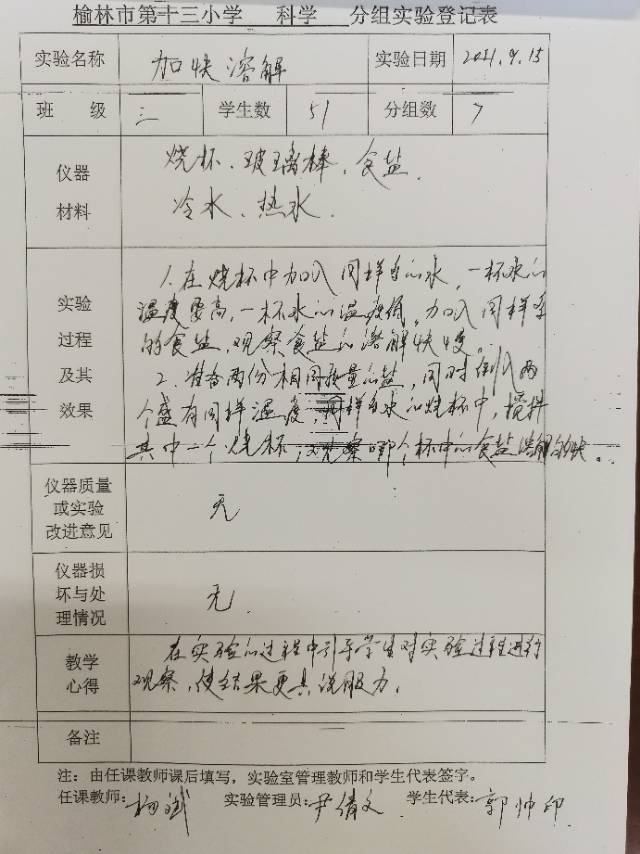 榆林市第十三小学 科学 分组实验登记表
实验名称 加快溶解 实验日期 2021.9.15
班 级 三 学生数 51 分组数 7
仪器材料 烧杯、玻璃棒、食盐、
冷水、热水.
实验过程及其效果 1.在烧杯中加入同样多的水,一杯水的
温度要高,一杯水的温度低,加入同样多
的食盐,观察食盐的溶解快慢。
2.准备两份相同质量的盐,同时倒入两
个盛有同样温度,同样多水的烧杯中,搅拌
其中一个烧杯,观察哪个杯中的食盐溶解的快。
仪器质量或实验改进意见 无
仪器损坏与处理情况 无.
教学心得 在实验的过程中引导学生对实验过程进行
观察,使结果更具说服力.
备注
注:由任课教师课后填写,实验室管理教师和学生代表签字。
任课教师:杨斌 实验管理员:尹倩文 学生代表:郭帅